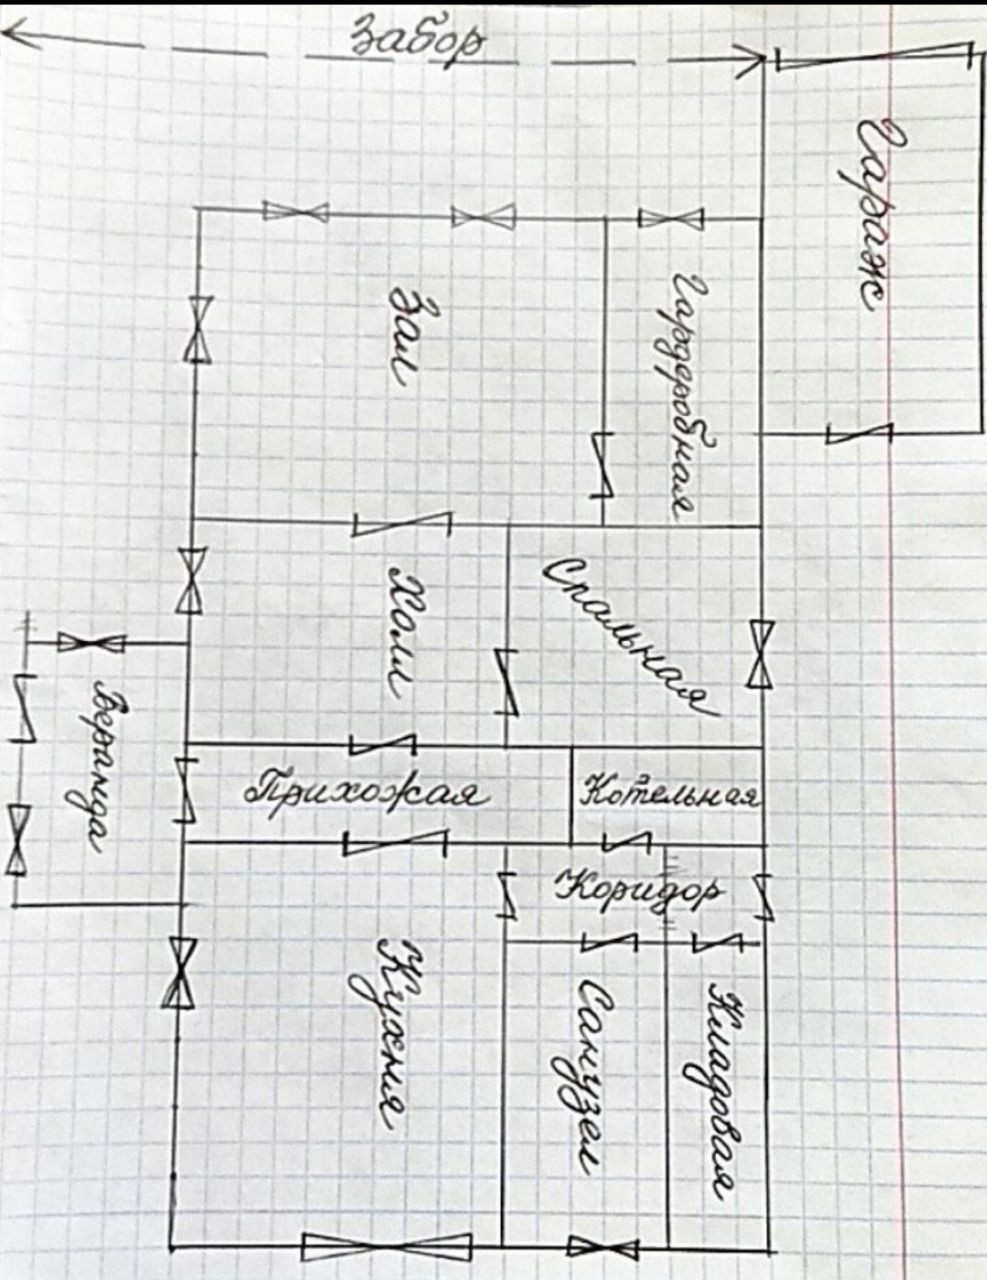 Забор
Гараж
Зал
Гардеробная
Холл
Спальная
Веранда
Прихожая
Котельная
Коридор
Кухня
Санузел
Кладовая